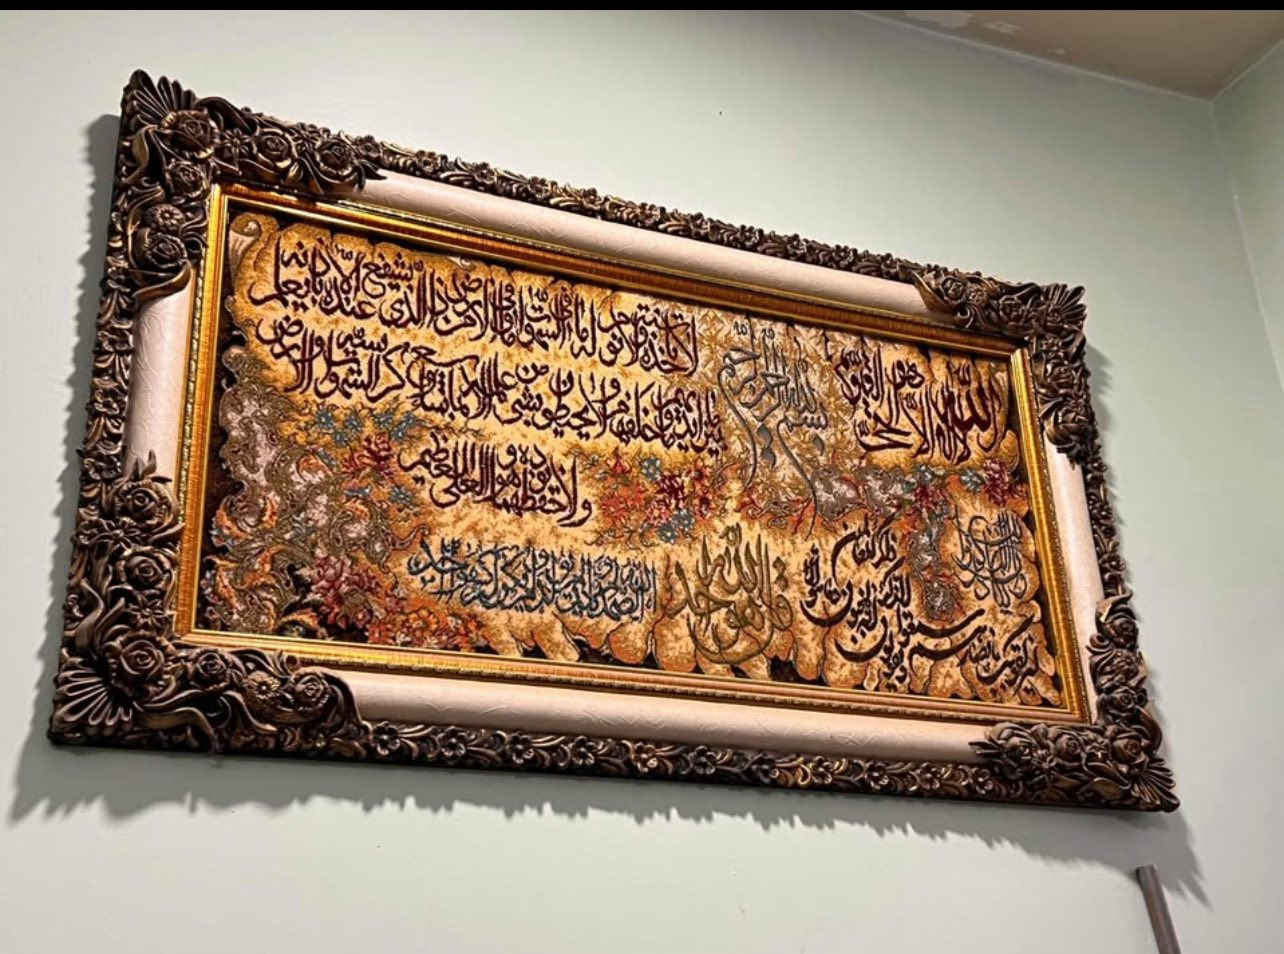 بسم الله الرحمن الرحيم
الله لا اله الا هو الحي القيوم
لا تأخذه سنة ولا نوم له ما في السموات وما في الارض من ذا الذي يشفع عنده الا باذنه يعلم
ما بين ايديهم وما خلفهم ولا يحيطون بشئ من علمه الا بما شاء وسع كرسيه السموات والارض
ولا يؤده حفظهما وهو العلي العظيم
وان يكاد الذين كفروا
ليزلقونك بابصارهم لما سمعوا الذكر ويقولون انه لمجنون وما هو الا ذكر للعالمين
قل هو الله احد
الله الصمد لم يلد ولم يولد ولم يكن له كفوا احد